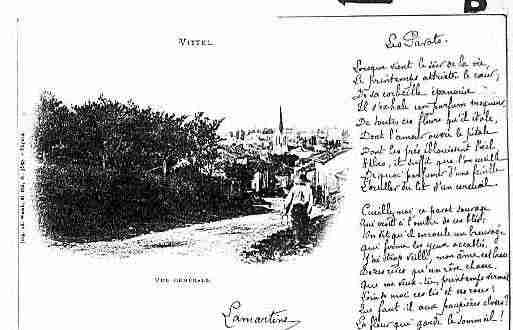 B
VITTEL
VUE GÉNÉRALE
Les Pavots.
Lorsque vient le soir de la vie,
Le printemps attriste le cœur,
De sa corbeille épanouie
Il s'exhale un parfum moqueur.
De toutes ces fleurs qu'il étale,
Dont l'amour ouvre le pétale
Dont les prés éblouissent l'œil
Hélas, il suffit que l'on cueille
De quoi parfumer d'une feuille
L'oreiller du lit d'un cercueil
Cueillez moi ce pavot sauvage
Qui croît à l'ombre de ces blés,
On dit qu'il en coule un breuvage
qui ferme les yeux accablés.
J'ai trop veillé, mon âme est lasse
De ces rêves qu'un rêve chasse.
Que me veux-tu, printemps vermeil
Loin de moi ces lis et ces roses!
Que faut il aux paupières closes?
La fleur qui garde le sommeil!
Lamartine